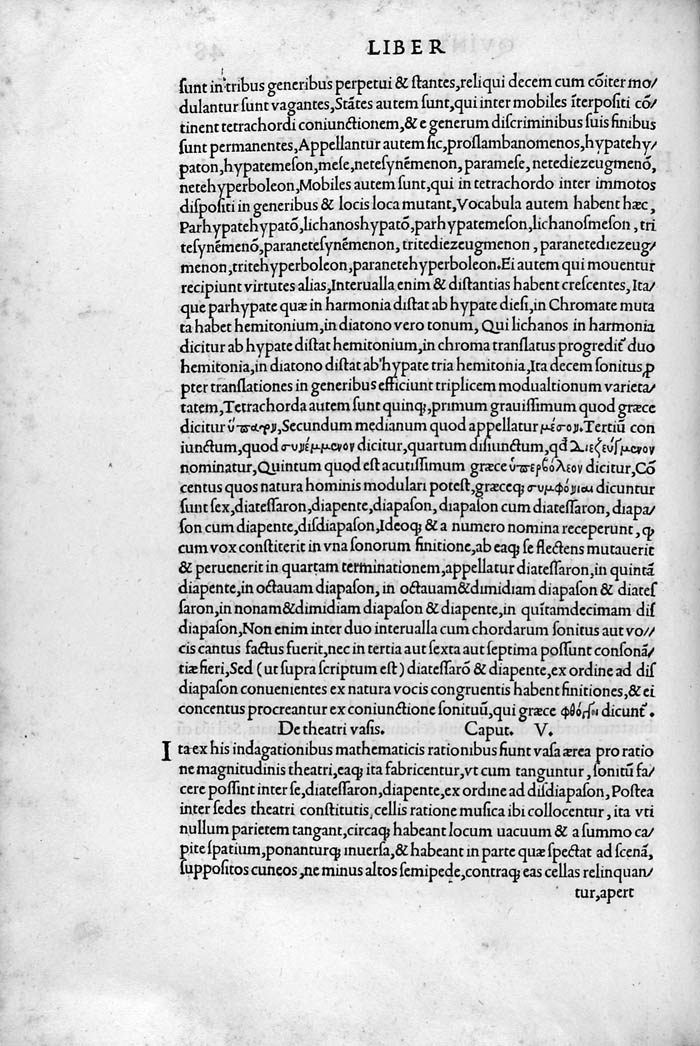 LIBER
ſunt in tribus generibus perpetui & ſtantes,reliqui decem cum cōiter mo/
dulantur ſunt vagantes, Stātes autem ſunt,qui inter mobiles īterpoſiti cō/
tinent tetrachordi coniunctionem,& e generum diſcriminibus ſuis finibus
ſunt permanentes,Appellantur autem ſic,proſlambanomenos,hypatehy/
paton,hypatemeſon,meſe,neteſynēmenon, parameſe, netediezeugmenō,
netehyperboleon,Mobiles autem ſunt,qui in tetrachordo inter immotos
diſpoſiti in generibus & locis loca mutant,Vocabula autem habent hæc,
Parhypatehypatō,lichanoshypatō,parhypatemeſon,lichanoſmeſon, tri
teſynēmenō,paraneteſynēmenon, tritediezeugmenon, paranetediezeug/
menon,tritehyperboleon,paranetehyperboleon.Ei autem qui mouentur
recipiunt virtutes alias,Interualla enim & diſtantias habent creſcentes, Ita/
que parhypate quæ in harmonia diſtat ab hypate dieſi,in Chromate muta
ta habet hemitonium,in diatono vero tonum, Qui lichanos in harmonia
dicitur ab hypate diſtat hemitonium,in chroma tranſlatus progredit̄ duo
hemitonia,in diatono diſtat ab hypate tria hemitonia,Ita decem ſonitus ꝓ
pter tranſlationes in generibus efficiunt triplicem modualtionum varieta/
tatem,Tetrachorda autem ſunt quinq;,primum grauiſſimum quod græce
dicitur ὑπατη, Secundum medianum quod appellatur μέσομ.Tertiū con
iunctum,quod συνέμμενον dicitur, quartum diſiunctum,qđ διεζεύγμενον
nominatur,Quintum quod eſt acutiſſimum græce ὑπερβόλεον dicitur,Cō
centus quos natura hominis modulari poteſt,græceq; συμφόνιαι dicuntur
ſunt ſex,diateſſaron,diapente,diapaſon, diapaſon cum diateſſaron, diapa/
ſon cum diapente,diſdiapaſon,Ideoq; & a numero nomina receperunt, ꝙ
cum vox conſtiterit in vna ſonorum finitione,ab eaq; ſe flectens mutauerit
& peruenerit in quartam terminationem,appellatur diateſſaron,in quintā
diapente,in octauam diapaſon, in octauam&dimidiam diapaſon & diateſ
ſaron,in nonam&dimidiam diapaſon & diapente,in quītamdecimam diſ
diapaſon,Non enim inter duo interualla cum chordarum ſonitus aut vo//
cis cantus factus fuerit,nec in tertia aut ſexta aut ſeptima poſſunt conſonā/
tiæ fieri, Sed (ut ſupra ſcriptum eſt) diateſſarō & diapente,ex ordine ad diſ
diapaſon conuenientes ex natura vocis congruentis habent finitiones,& ei
concentus procreantur ex coniunctione ſonituū,qui græce φθόγγοι dicunt̄.
De theatri vaſis. Caput. V.
I ta ex his indagationibus mathematicis rationibus fiunt vaſa ærea pro ratio
ne magnitudinis theatri,eaq; ita fabricentur,vt cum tanguntur, ſonitū fa/
cere poſſint inter ſe,diateſſaron,diapente,ex ordine ad diſdiapaſon, Poſtea
inter ſedes theatri conſtitutis cellis ratione muſica ibi collocentur, ita vti
nullum parietem tangant,circaq; habeant locum uacuum & a ſummo ca/
pite ſpatium,ponanturq; inuerſa,& habeant in parte quæ ſpectat ad ſcenā,
ſuppoſitos cuneos,ne minus altos ſemipede,contraq; eas cellas relinquan/
tur,apert